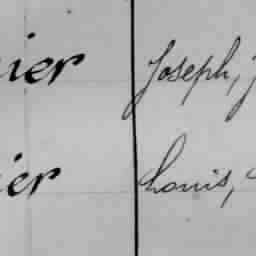 ier Joseph, J
ier Louis,